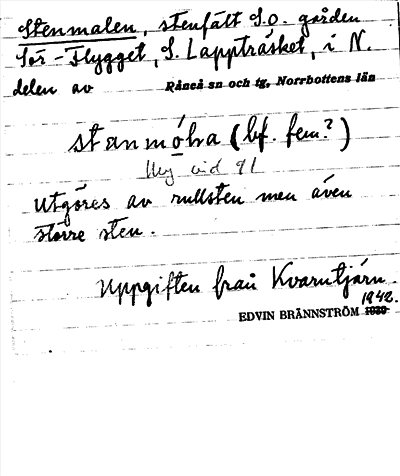 Stenmalen, stenfält S.O. gården
Sör-Flygget, S. Lappträsket, i N.
delen av Råneå sn och tg, Norrbottens län
stanmóƚra (bf. fem?)
utgöres av rullsten men även
större sten.
Uppgiften från Kvarntjärn.
1942.
EDVIN BRÄNNSTRÖM 1939